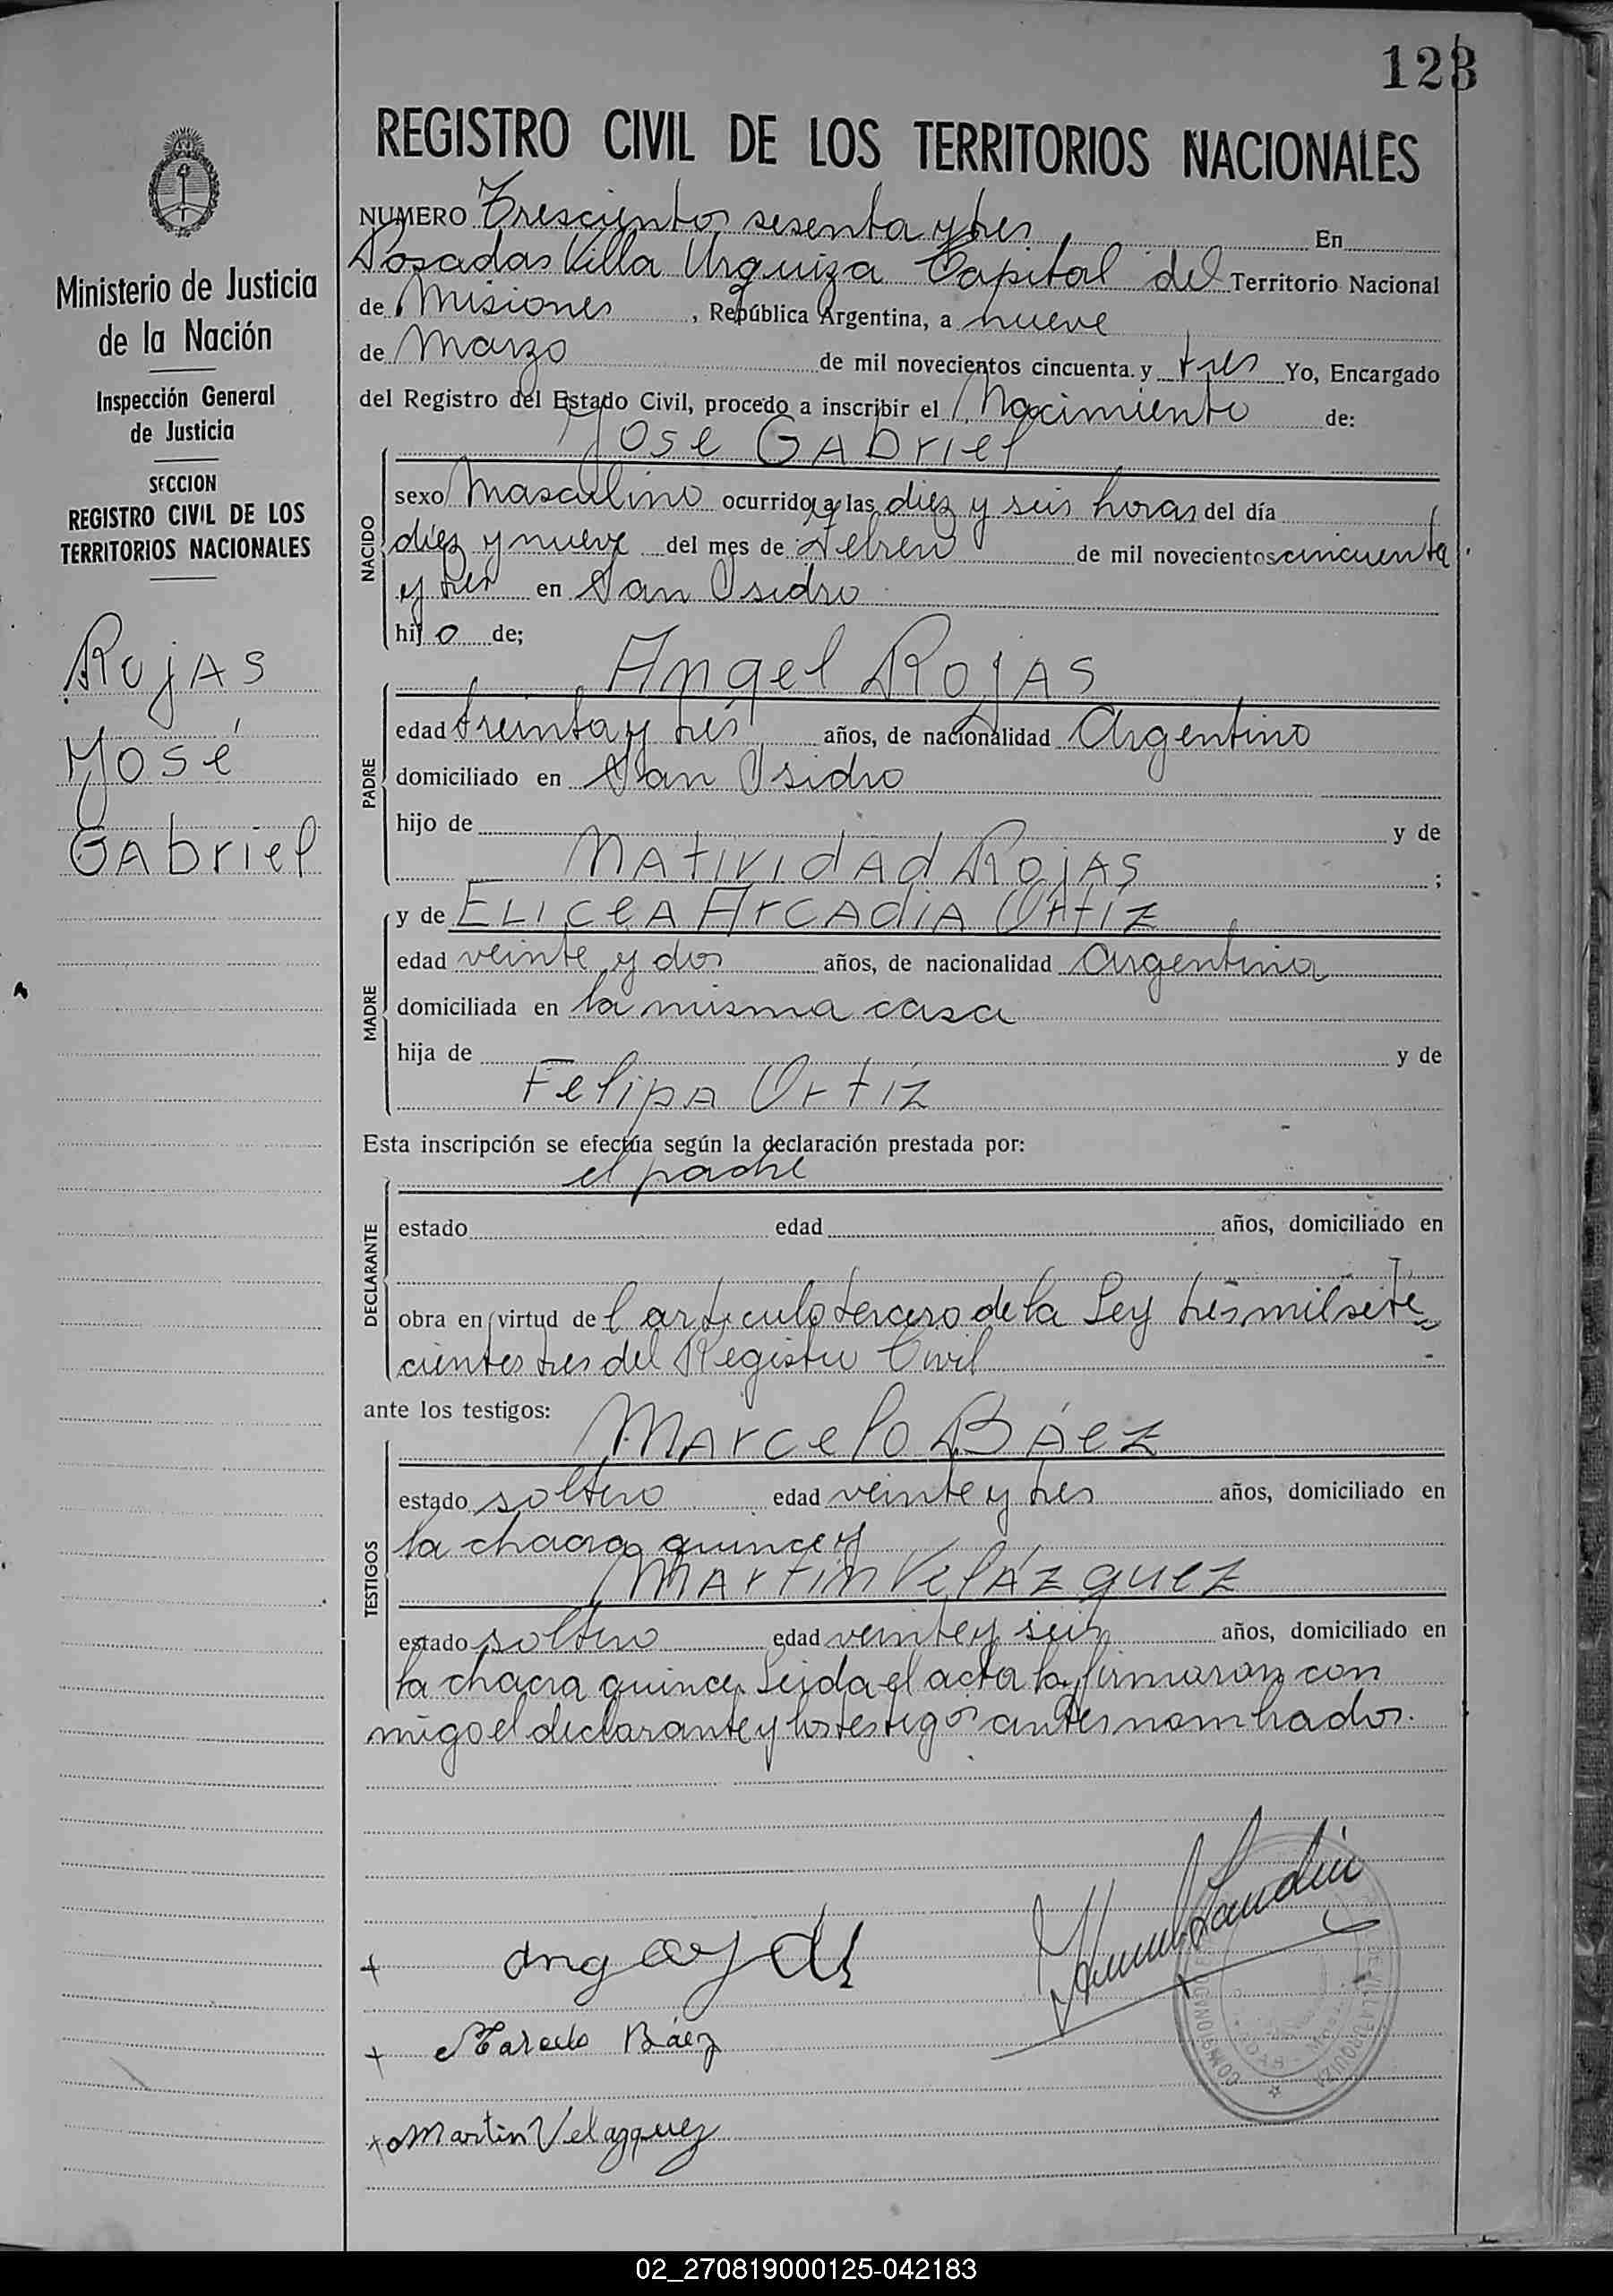 123
REGISTRO CIVIL DE LOS TERRITORIOS NACIONALES
NUMERO Trescientos sesenta y tres En
Posadas Villa Urquiza Capital del Territorio Nacional
de Misiones , República Argentina, a nueve
de Marzo de mil novecientos cincuenta y tres Yo, Encargado
del Registro del Estado Civil, procedo a inscribir el Nacimiento de:
José GAbriel
NACIDO
sexo Masculino ocurrido a las diez y seis horas del día
diez y nueve del mes de Febrero de mil novecientos cincuenta
y tres en San Isidro
hijo de;
Angel ROJAS
PADRE
edad treinta y tres años, de nacionalidad Argentino
domiciliado en San Isidro
hijo de y de
NAtividAd ROJAS ;
MADRE
y de ELiceA ArcAdiA Ortiz
edad veinte y dos años, de nacionalidad Argentina
domiciliada en la misma casa
hija de y de
FelipA Ortíz
Esta inscripción se efectúa según la declaración prestada por:
el padre
DECLARANTE
estado edad años, domiciliado en
obra en virtud del artículo tercero de la Ley tres mil sete=
cientos tres del Registro Civil
ante los testigos:
MArcelo BÁez
TESTIGOS
estado soltero edad veinte y tres años, domiciliado en
la chacra quince y
MArtín VelÁzquez
estado soltero edad veinte y seis años, domiciliado en
la chacra quince. Leida el acta la firmaron con
migo el declarante y los testigos antes nombrados.
+ Marcelo Báez
+ Martin Velazquez
VILLA URQUIZA
Ministerio de Justicia
de la Nación
Inspección General
de Justicia
SECCION
REGISTRO CIVIL DE LOS
TERRITORIOS NACIONALES
RojAS
José
GAbriel
02_270819000125-042183